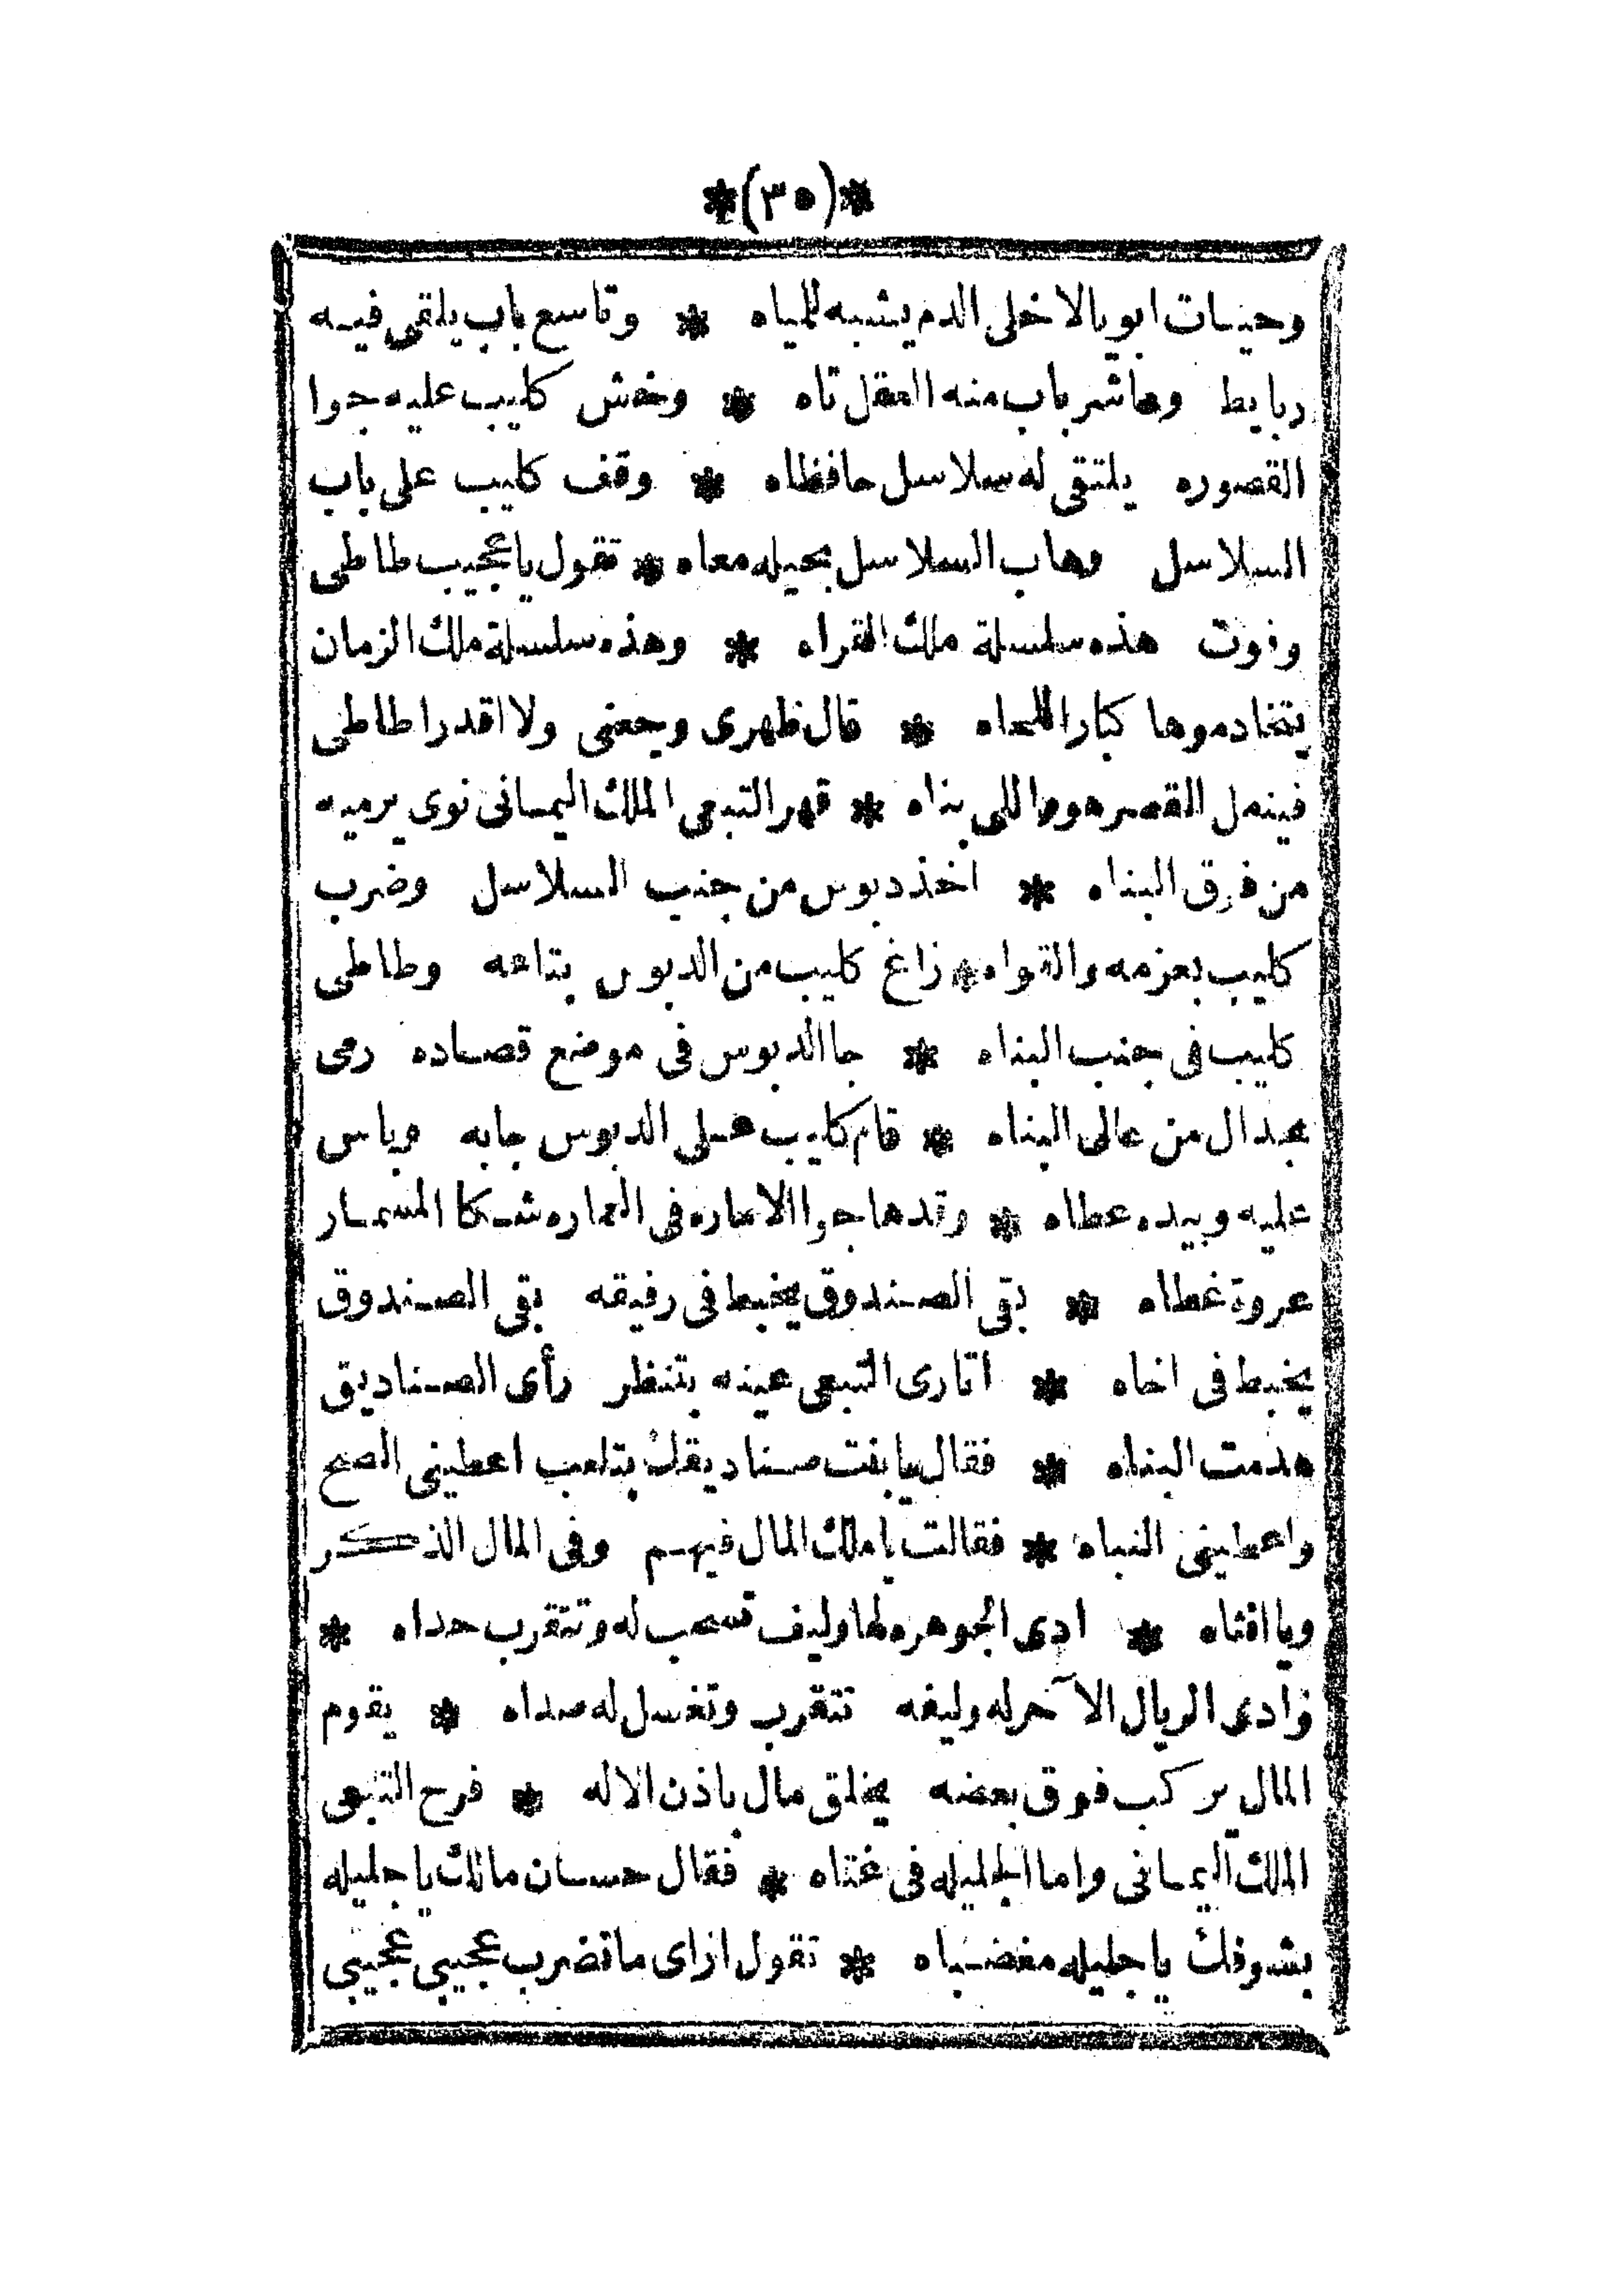 *(٣٥)*
وحيات ابويا لاخلى الدم يشبه للمياه * وتاسع باب يلتقى فيه
ربايط وعاشر باب منه العقل تاه * وخش كليب عليه جوا
القصوره يلتقى له سلاسل حافظاه * وقف كليب على باب
السلاسل وهاب السلاسل بحيله معاه * تقول يا عجيب طاطى
وفوت هذه سلسلة ملك القراه * وهذه سلسلة ملك الزمان
يتخادموها كبار اللحاه * قال ظهرى وجعنى ولا اقدر اطاطى
فينعل القصر هوه اللى بناه * قهر التبعى الملك اليمانى نوى يرميه
من فوق البناه * اخذ دبوس من جنب السلاسل وضرب
كليب بعزمه والقواه * زاغ كليب من الدبوس بتاعه وطاطى
كليب فى جنب البناه * جا الدبوس فى موضع قصاده رمى
بجدال من عالى البناه * قام كليب على الدبوس جابه وباس
عليه وبيده عطاه * وتدها جوا الاماره فى العماره شكا المسمار
عروة غطاه * بقى الصندوق يخبط فى رفيقه بقى الصندوق
يخبط فى اخاه * اتارى التبعى عينه بتنظر رأى الصناديق
هدمت البناه * فقال يا بنت صناديقك بتلعب اعطينى الصح
واعطينى النباه * فقالت يا ملك المال فيهم وفى المال الذكر
ويا انثاه * ادى الجوهره لها وليف تسحب له وتتقرب حداه *
وادى الريال الآخر له وليفه تتقرب وتغسل له صداه * يقوم
المال يركب فوق بعضه يخلق مال باذن الاله * فرح التبعى
الملك اليمانى واما الجليله فى غتاه * فقال حسان مالك يا جليله
بشوفك يا جليله مغضباه * تقول ازاى ما تضرب عجيبى عجيبى